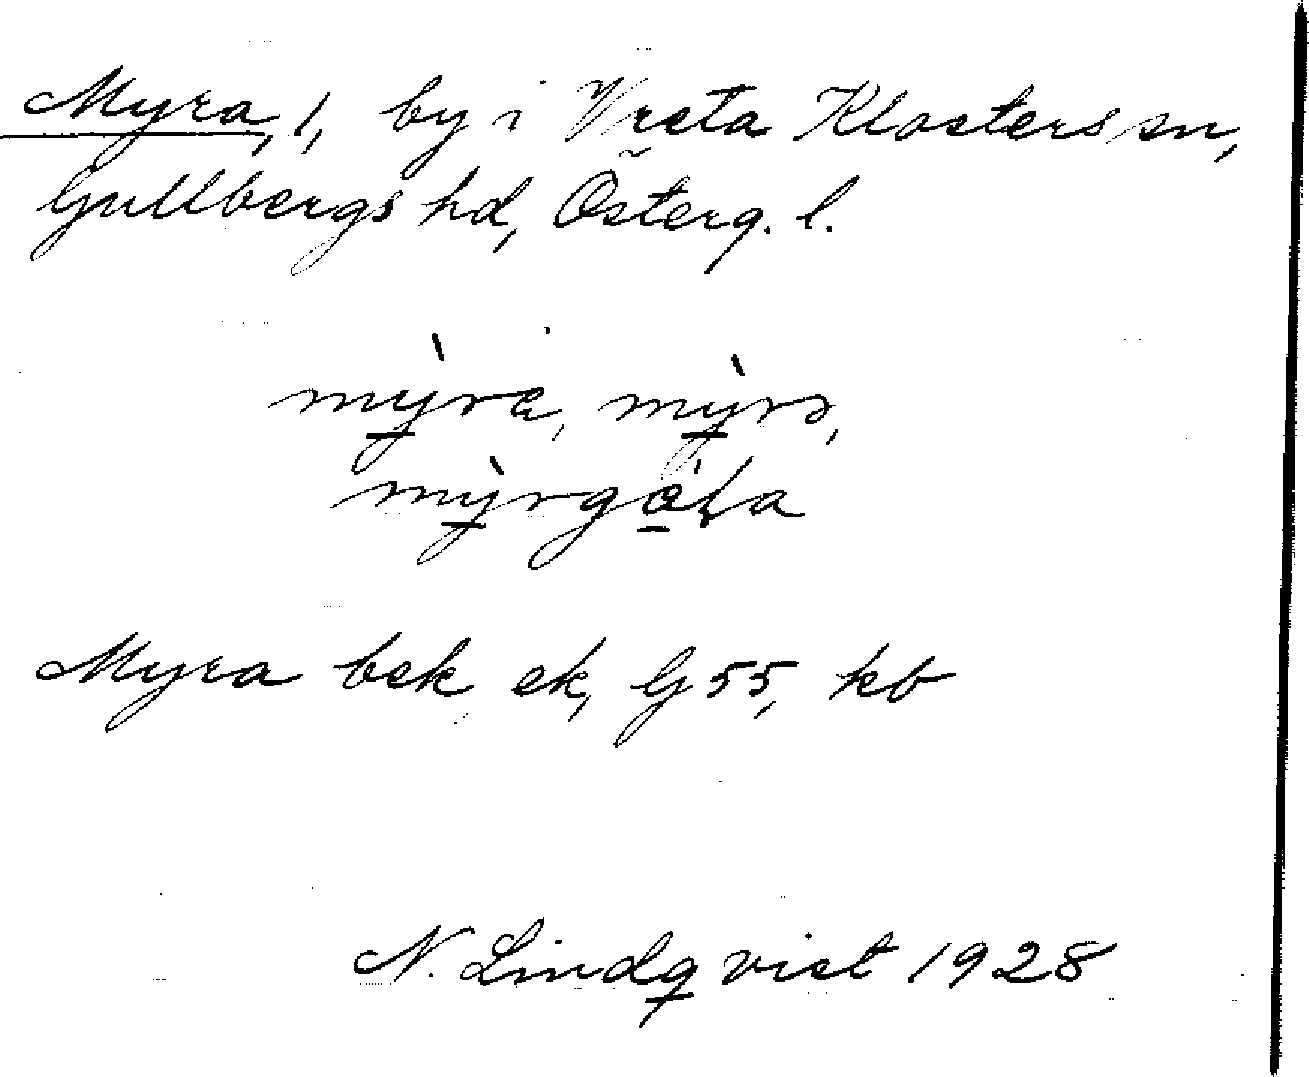 Myra, 1, by i Vreta Klosters sn,
Gullbergs hd, Österg. l.
mỳra, mỳrə,
mỳrgöta
Myra bek ek, G 55, kb
N. Lindqvist 1928